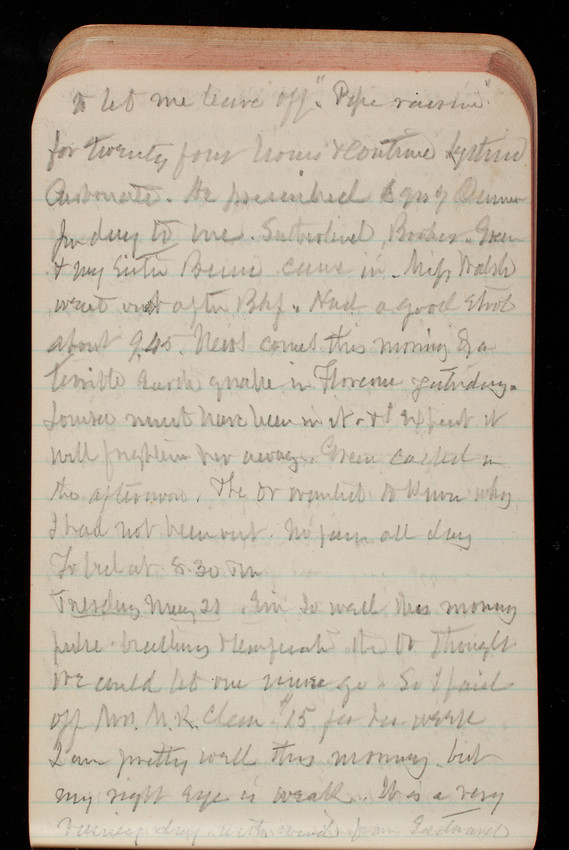 to let me leave off "Pipe
for twenty four hours & continue
. He prescribed 6 grs of
per day to me. Sutherland, Brooks. Green
& my Sister Bessie came in. Miss Walsh
went out after Bkf. Had a good stool
about 9.45. News comes this morning of a
terrible Earth quake in Florence yesterday.
Louisa must have been in it & I expect it
will frighten her away. Green called in
the afternoon. The Dr wanted to know why
I had not been out. No pain all day
To bed at 8.30 PM
Tuesday May 21. Am so well this morning
pulse breathing & temperature the Dr thought
we could let one nurse go. So I paid
off Mrs. M. R. Clean $15 for her week
I am pretty well this morning but
my right eye is weak. It is a very
day with wind from Eastward